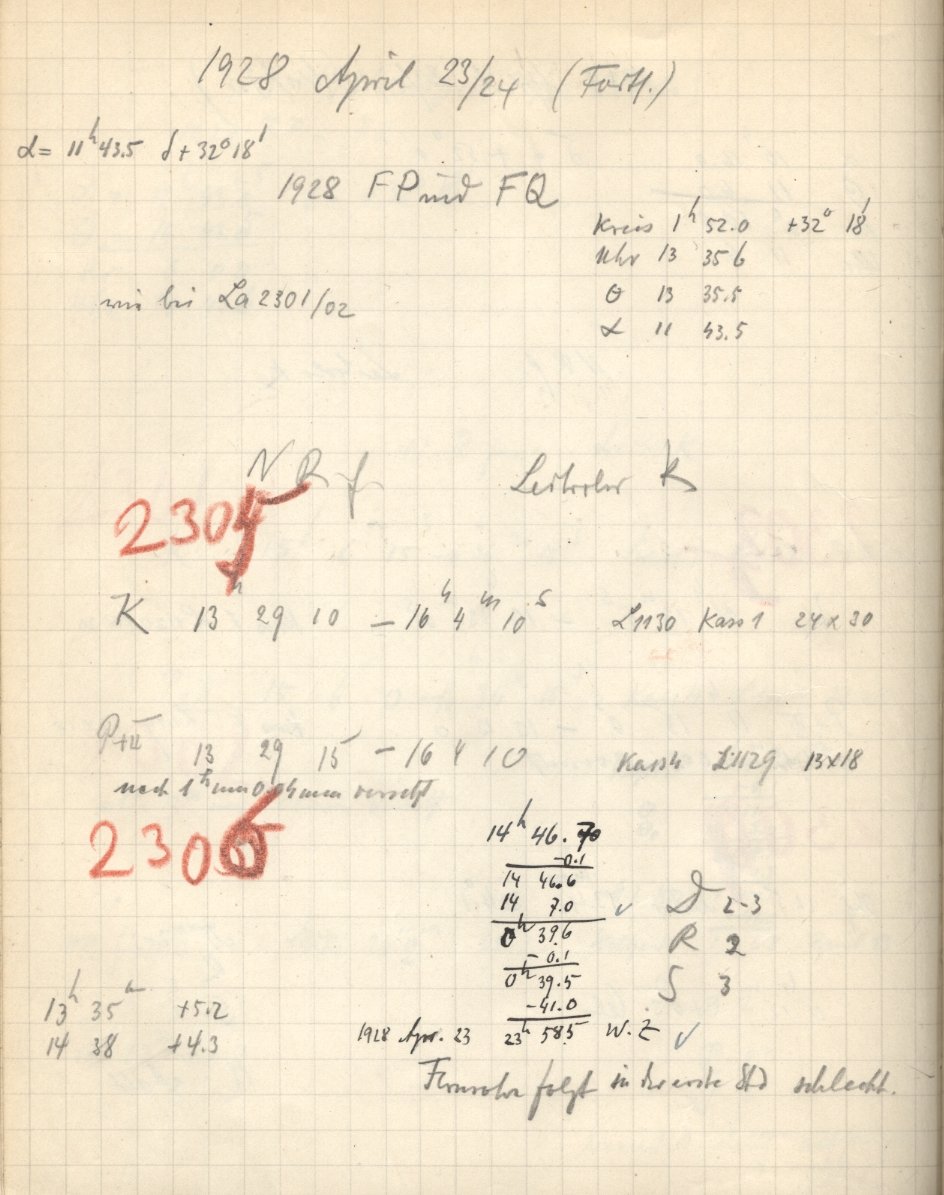 1928 April 23/24 (Forts.)
α = 11h 43.5 δ + 32° 18'
1928 FP und FQ
Kreis 1h 52.0 +32° 18'
Uhr 13 35 6
θ 13 35.5
α 11 43.5
wie bei La 2301/02
N R f Leitrohr K
2305
K 13h 29 10 – 16h 4m 10s L1130 Kass 1 24x30
P+II 13 29 15 – 16 4 10 Kass 4 L1129 13x18
nach 1h um 0.04 mm versetzt
2306
14h 46.70
-0.1
14 46.6
14 7.0 ✓ D 2-3
0h 39.6 R 2
- 0.1
0h 39.5 S 3
-41.0
13h 35m +5.2
14 38 +4.3
1928 Apr. 23 23h 58.5 W.Z ✓
Fernrohr folgt in der erste Std schlecht.